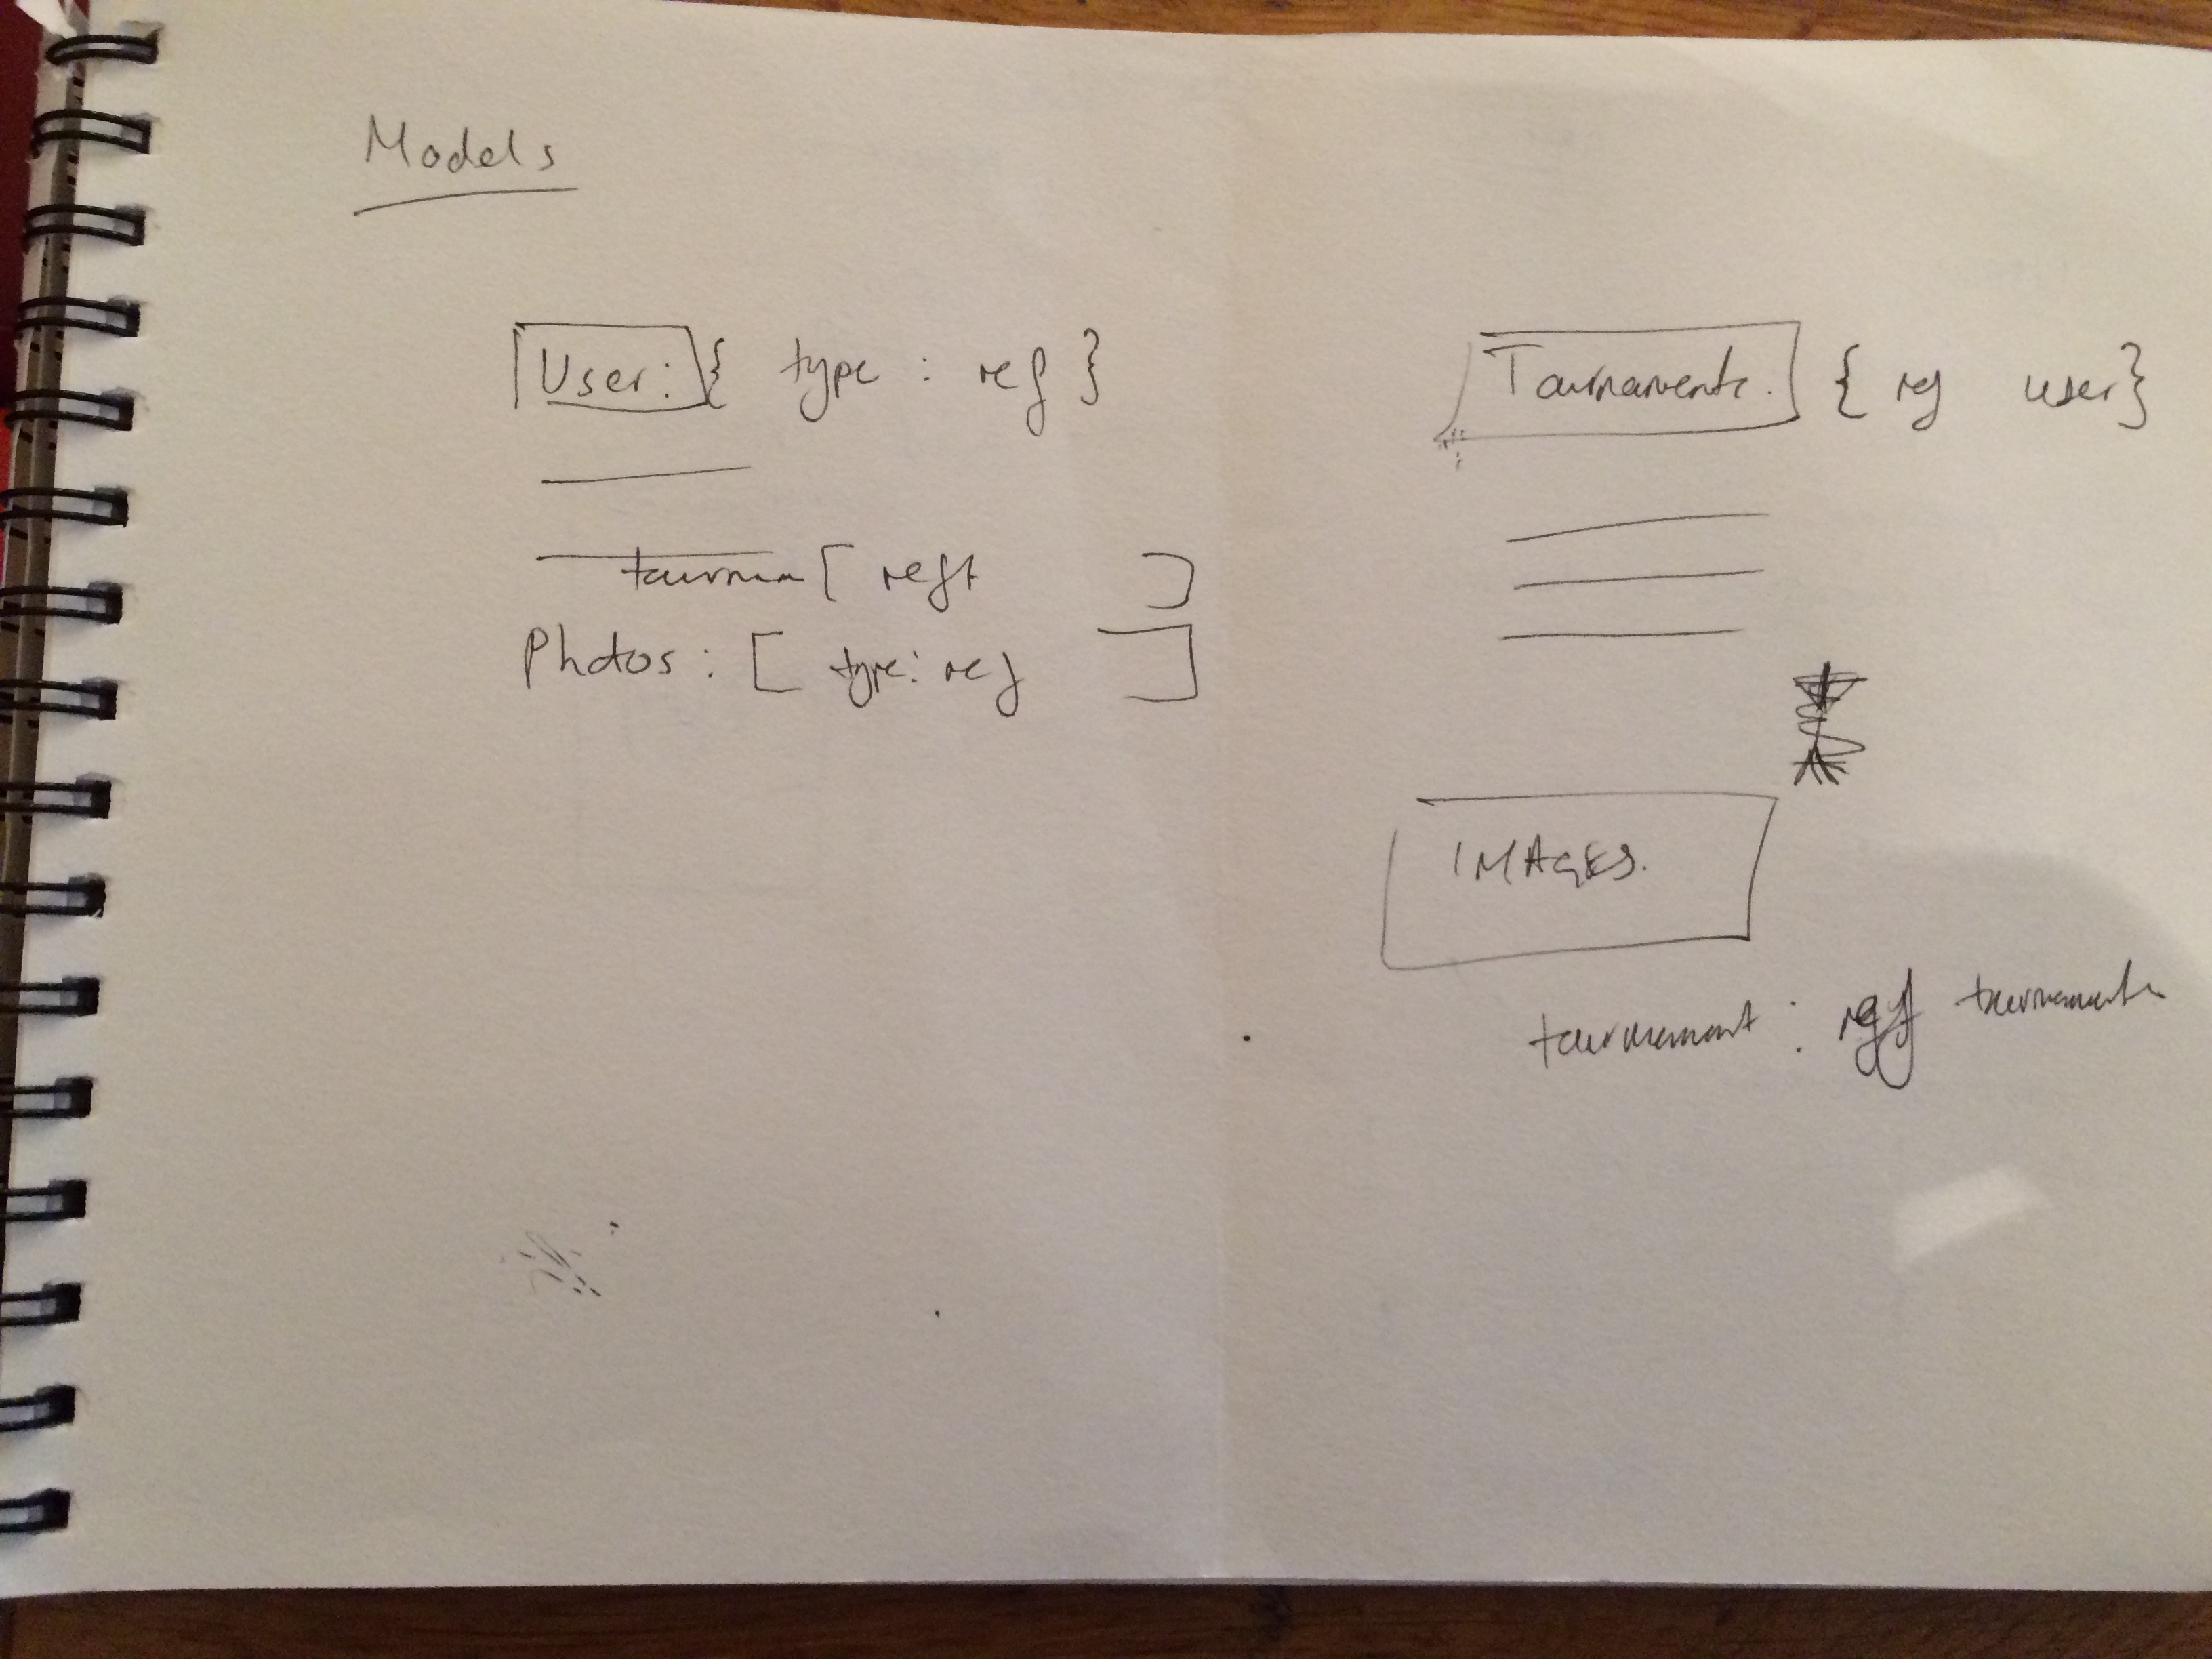 Models
User: { type : ref }
tournam [ ref ]
Photos : [ type: ref ]
Tournaments. { ref user }
IMAGES.
tournament : ref tournaments